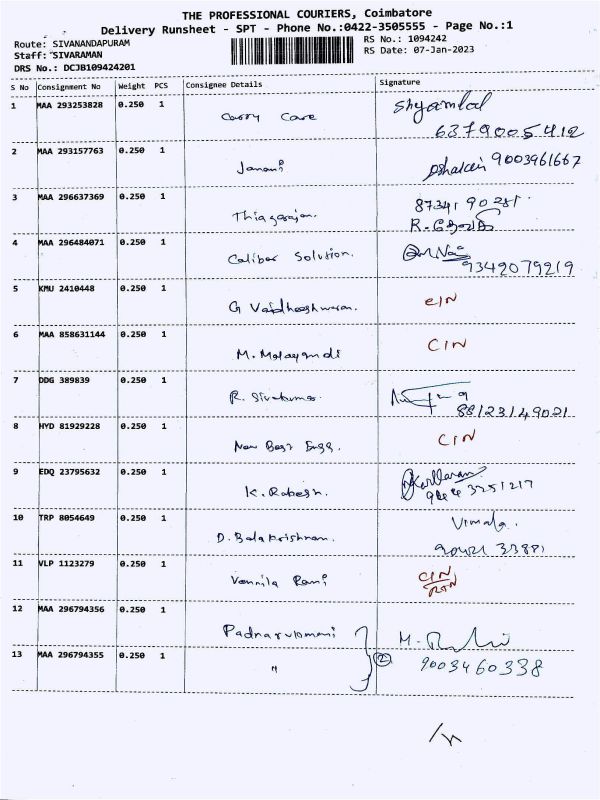 THE PROFESSIONAL COURIERS, Coimbatore
Delivery Runsheet - SPT - Phone No.:0422-3505555 - Page No.:1
Route: SIVANANDAPURAM
RS No.: 1094242
Staff: SIVARAMAN
RS Date: 07-Jan-2023
DRS No.: DCJB109424201
S No Consignment No Weight PCS Consignee Details Signature
1 MAA 293253828 0.250 1 Carry Care Shyamlal
6379005412
2 MAA 293157763 0.250 1 Janani 9003961667
3 MAA 296637369 0.250 1 Thiagarajan. 87341 90281.
R.
4 MAA 296484071 0.250 1 Caliber Solution.
9342079219
5 KMU 2410448 0.250 1 G Vaidheeshwaran. CIN
6 MAA 858631144 0.250 1 M. Malayandi CIN
7 DDG 389839 0.250 1 R. Sivakumar.
8 HYD 81929228 0.250 1 New Best Engg. CIN
9 EDQ 23795632 0.250 1 K. Rabesh.
3251217
10 TRP 8054649 0.250 1 D. Balakrishnan. Vimala.
11 VLP 1123279 0.250 1 Vennila Rani CIN
RTN
12 MAA 296794356 0.250 1 M.
13 MAA 296794355 0.250 1 " 2 9003460338